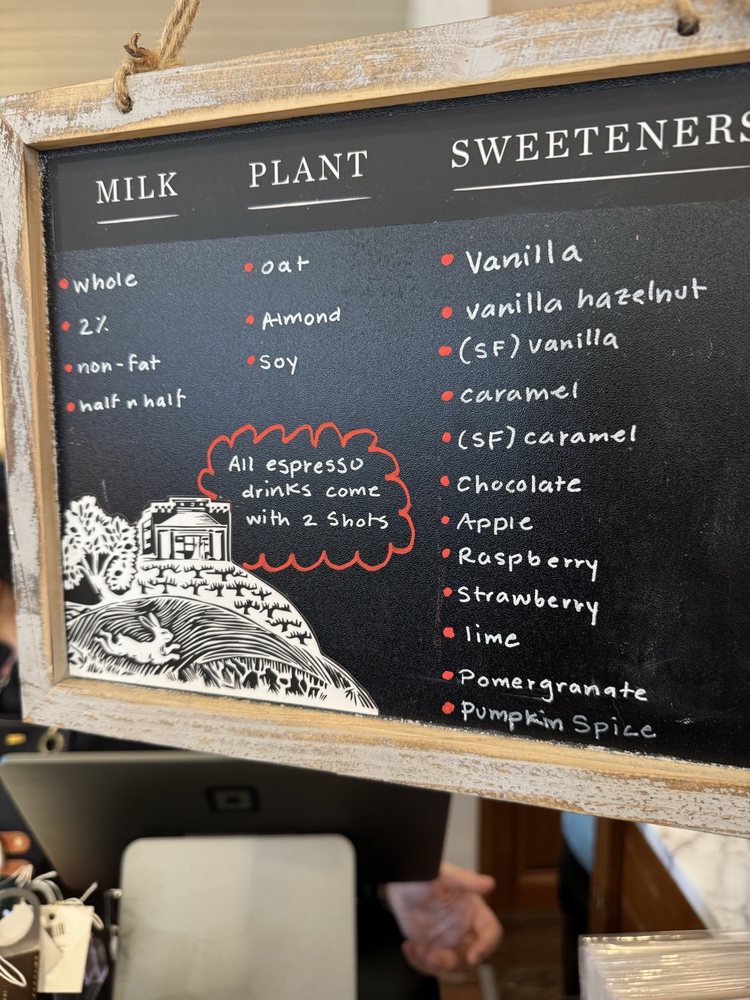 MILK
whole
2%
non-fat
half n half
PLANT
oat
Almond
Soy
SWEETENERS
Vanilla
vanilla hazelnut
(SF) vanilla
caramel
(SF) caramel
Chocolate
Apple
Raspberry
Strawberry
lime
Pomergranate
Pumpkin Spice
All espresso
drinks come
with 2 Shots